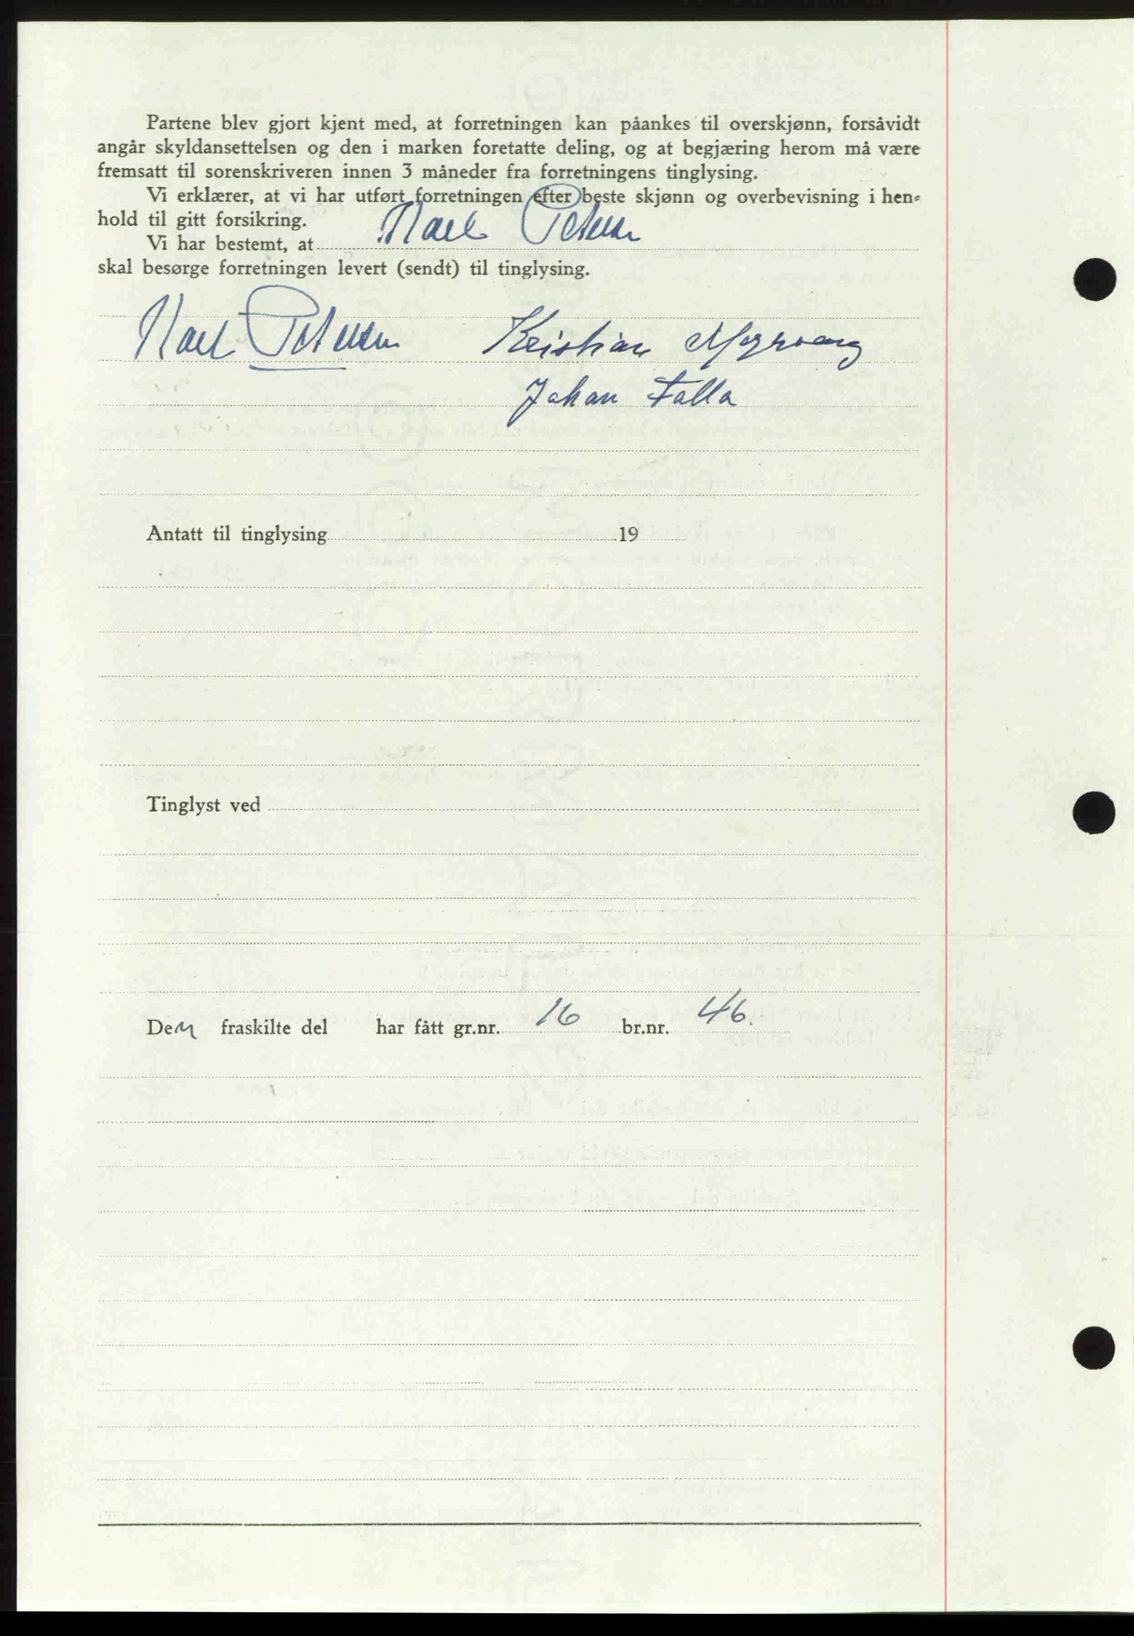 Partene blev gjort kjent med, at forretningen kan påankes til overskjønn, forsåvidt
angår skyldansettelsen og den i marken foretatte deling, og at begjæring herom må være
fremsatt til sorenskriveren innen 3 måneder fra forretningens tinglysing.
Vi erklærer, at vi har utført forretningen efter beste skjønn og overbevisning i hen-
hold til gitt forsikring.
Vi har bestemt, at Petersen
skal besørge forretningen levert (sendt) til tinglysing.
Petersen Kristian
Johan Falla
Antatt til tinglysing 19
Tinglyst ved
Den fraskilte del har fått gr.nr. 16 br.nr. 46.